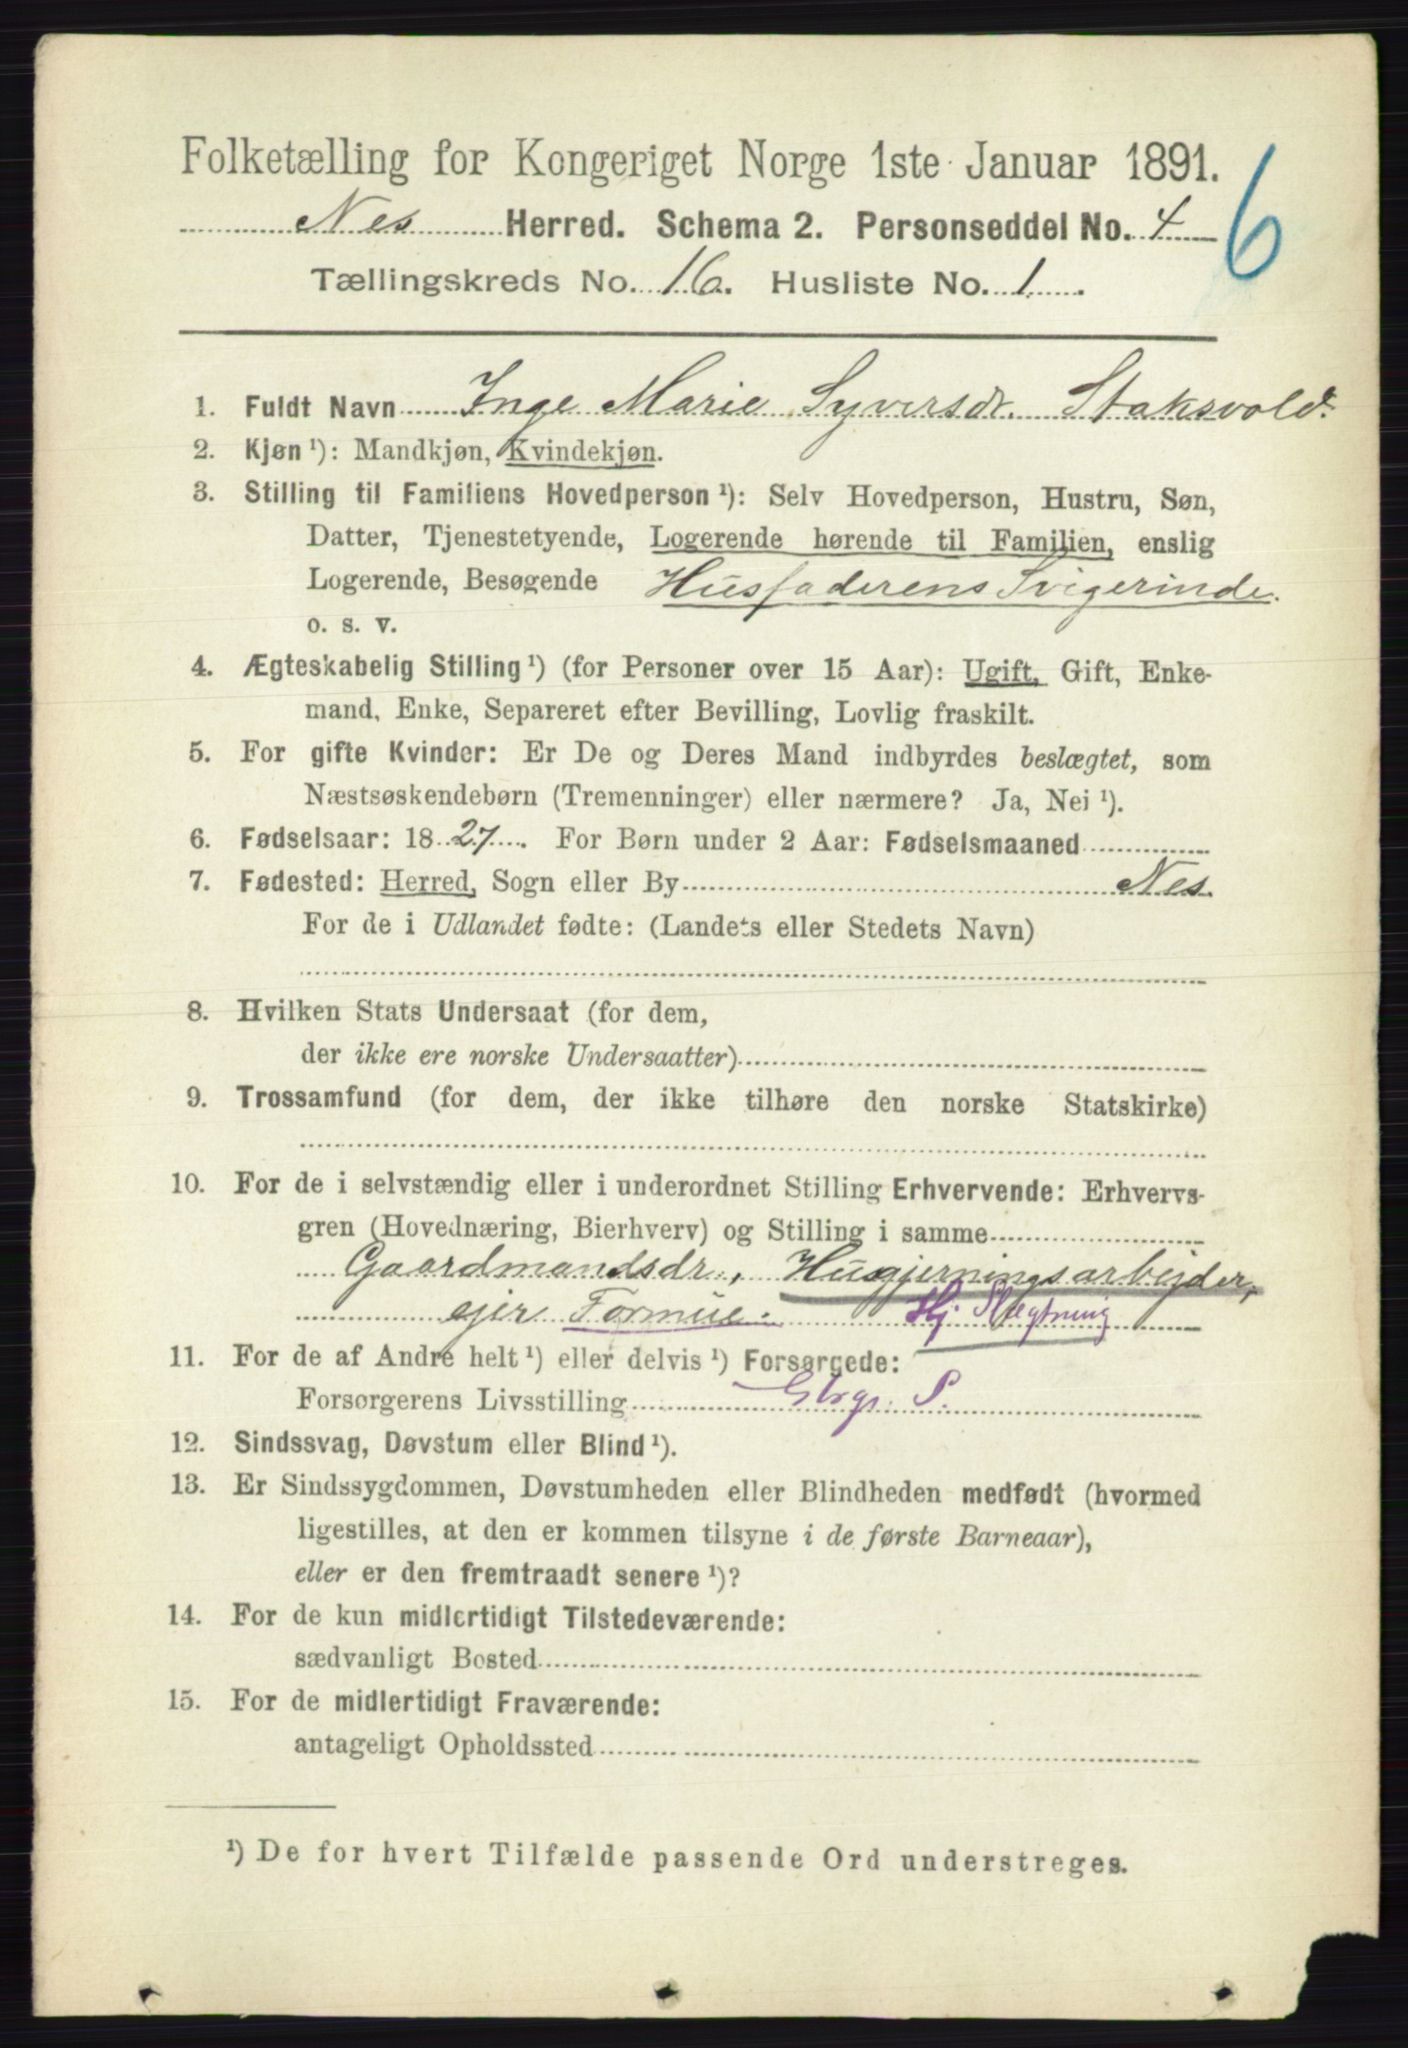 Folketælling for Kongeriget Norge 1ste Januar 1891.
6
Nes Herred. Schema 2. Personseddel No. 4
Tællingskreds No. 16. Husliste No. 1.
1. Fuldt Navn Inge Marie Syversdr. Staksvold.
2. Kjøn ¹): Mandkjøn, Kvindekjøn.
3. Stilling til Familiens Hovedperson ¹): Selv Hovedperson, Hustru, Søn,
Datter, Tjenestetyende, Logerende hørende til Familien, enslig
Logerende, Besøgende Husfaderens Svigerinde.
o. s. v.
4. Ægteskabelig Stilling ¹) (for Personer over 15 Aar): Ugift, Gift, Enke-
mand, Enke, Separeret efter Bevilling, Lovlig fraskilt.
5. For gifte Kvinder: Er De og Deres Mand indbyrdes beslægtet, som
Næstsøskendebørn (Tremenninger) eller nærmere? Ja, Nei ¹).
6. Fødselsaar: 1827. For Børn under 2 Aar: Fødselsmaaned
7. Fødested: Herred, Sogn eller By Nes.
For de i Udlandet fødte: (Landets eller Stedets Navn)
8. Hvilken Stats Undersaat (for dem,
der ikke ere norske Undersaatter)
9. Trossamfund (for dem, der ikke tilhøre den norske Statskirke)
10. For de i selvstændig eller i underordnet Stilling Erhvervende: Erhvervs-
gren (Hovednæring, Bierhverv) og Stilling i samme
Gaardmandsdr., Husgjerningsarbejder,
ejer Formue. Hj. Slægtning
11. For de af Andre helt ¹) eller delvis ¹) Forsørgede:
Forsørgerens Livsstilling Gbrgr. S.
12. Sindssvag, Døvstum eller Blind ¹).
13. Er Sindssygdommen, Døvstumheden eller Blindheden medfødt (hvormed
ligestilles, at den er kommen tilsyne i de første Barneaar),
eller er den fremtraadt senere ¹)?
14. For de kun midlertidigt Tilstedeværende:
sædvanligt Bosted
15. For de midlertidigt Fraværende:
antageligt Opholdssted
¹) De for hvert Tilfælde passende Ord understreges.